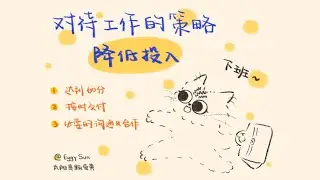 对待工作的策略
降低投入
下班~
① 达到60分
② 按时交付
③ 必要的沟通&合作
@ Eggy Sun